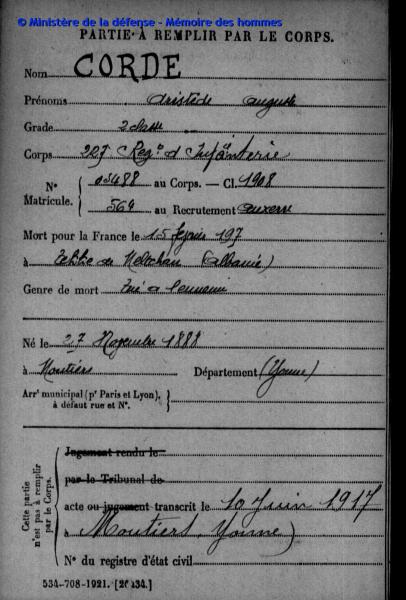 © Ministère de la défense - Mémoire des hommes
PARTIE À REMPLIR PAR LE CORPS.
Nom CORDE
Prénoms Aristide Auguste
Grade 2 classe
Corps 227 Regt d'Infanterie
N° Matricule. 05488 au Corps. — Cl. 1908
564 au Recrutement Auxerre
Mort pour la France le 15 février 197
à de (Albanie)
Genre de mort Tué à l'ennemi
Né le 27 Novembre 1888
à Moutiers Département (Yonne)
Arrt municipal (pr Paris et Lyon), à défaut rue et N°.
Cette partie n'est pas à remplir par le Corps.
Jugement rendu le
par le Tribunal de
acte ou jugement transcrit le 10 Juin 1917
à Moutiers, Yonne)
N° du registre d'état civil
534-708-1921. [26434.]